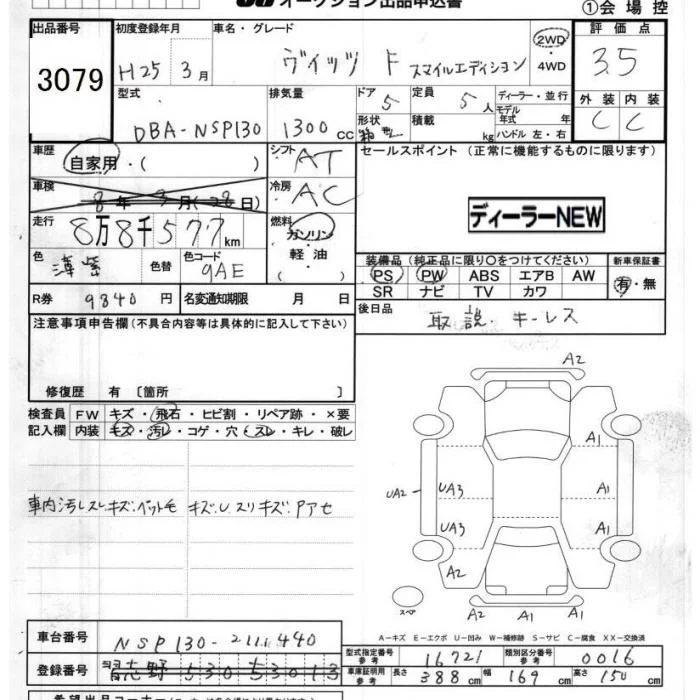 オークション出品申込書
①会場控
出品番号 初度登録年月 車名・グレード 評価点
3079 H25 3月 ヴィッツ F スマイルエディション 2WD ・4WD 3.5
型式 排気量 ドア 5 定員 5人 ディーラー・並行 外装 内装
DBA-NSP130 1300cc 形状 積載 kg モデル年式 年 ハンドル 左・右 C C
車歴 自家用・( ) シフト AT セールスポイント (正常に機能するものに限ります)
車検 8年3月(28日) 冷房 AC
ディーラーNEW
走行 8万8千577km 燃料 ガソリン
軽油
( )
色 薄紫 色替 色コード 9AE
装備品 (純正品に限り○をつけてください) 新車保証書
PS PW ABS エアB AW 有・無
SR ナビ TV カワ
R券 9840円 名変通知期限 月 日
後日品 取説.キーレス
注意事項申告欄(不具合内容等は具体的に記入して下さい)
修復歴 有 〔箇所 〕
検査員 FW キズ・飛石・ヒビ割・リペア跡・×要
記入欄 内装 キズ・汚レ・コゲ・穴・スレ・キレ・破レ
車内汚レスレキズ.ペット毛 キズ.U.スリキズ.Pアセ
A2
A1
UA2 UA3 A1
UA3 A1
A2
スペア A2 A1 A1
A−キズ E−エクボ U−凹み W−補修跡 S−サビ C−腐食 XX−交換済
車台番号 NSP130-2111440
型式指定番号 参考 16721 類別区分番号 参考 0016
登録番号 習志野530 53013
車庫証明用 参考 長さ 388cm 幅 169cm 高さ 150cm
希望出品コーナー